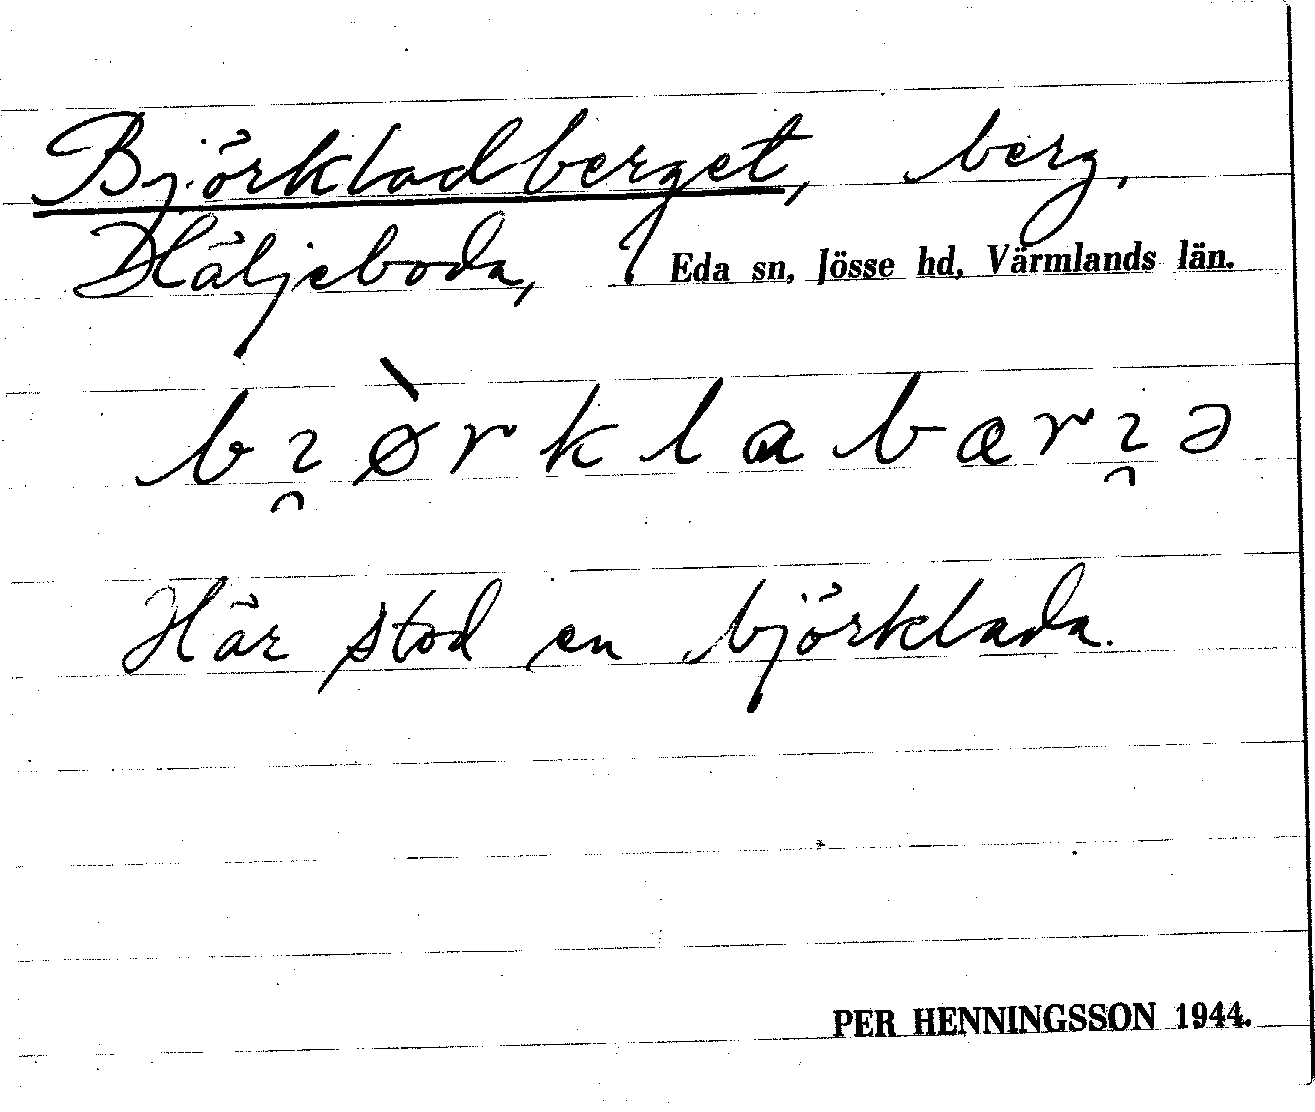 Björkladberget, berg,
Häljeboda, Eda sn, Jösse hd, Värmlands län.
bı̯ø̀rklabærı̯ə
Här stod en björklada.
PER HENNINGSSON 1944.